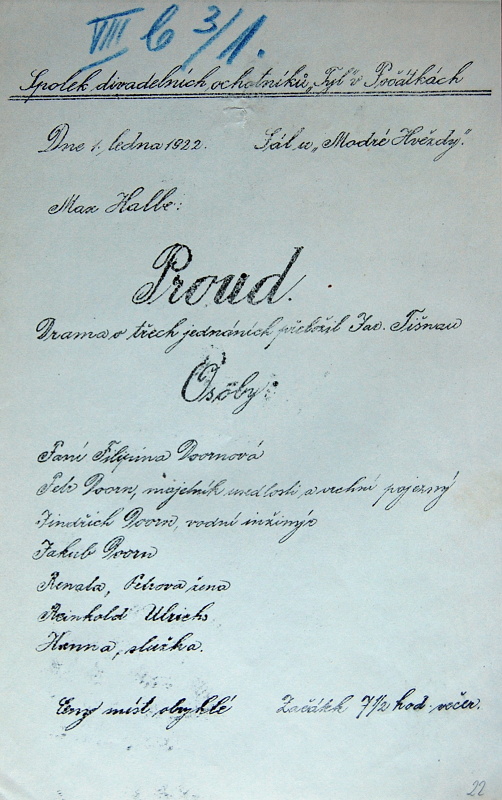 VIII b 3/1.
Spolek divadelních ochotníků „Tyl“ v Počátkách
Dne 1. ledna 1922. Sál u „Modré Hvězdy“.
Max Halbe:
Proud.
Drama o třech jednáních přeložil Jar. Tišnau
Osoby:
Paní Filipina Doornová
Petr Doorn, majetník usedlosti a vrchní pojezný
Jindřich Doorn, vodní inžinýr
Jakub Doorn
Renata, Petrova žena
Reinhold Ulrichs
Hanna, služka.
Ceny míst obyklé Začátek 7½ hod. večer.
22